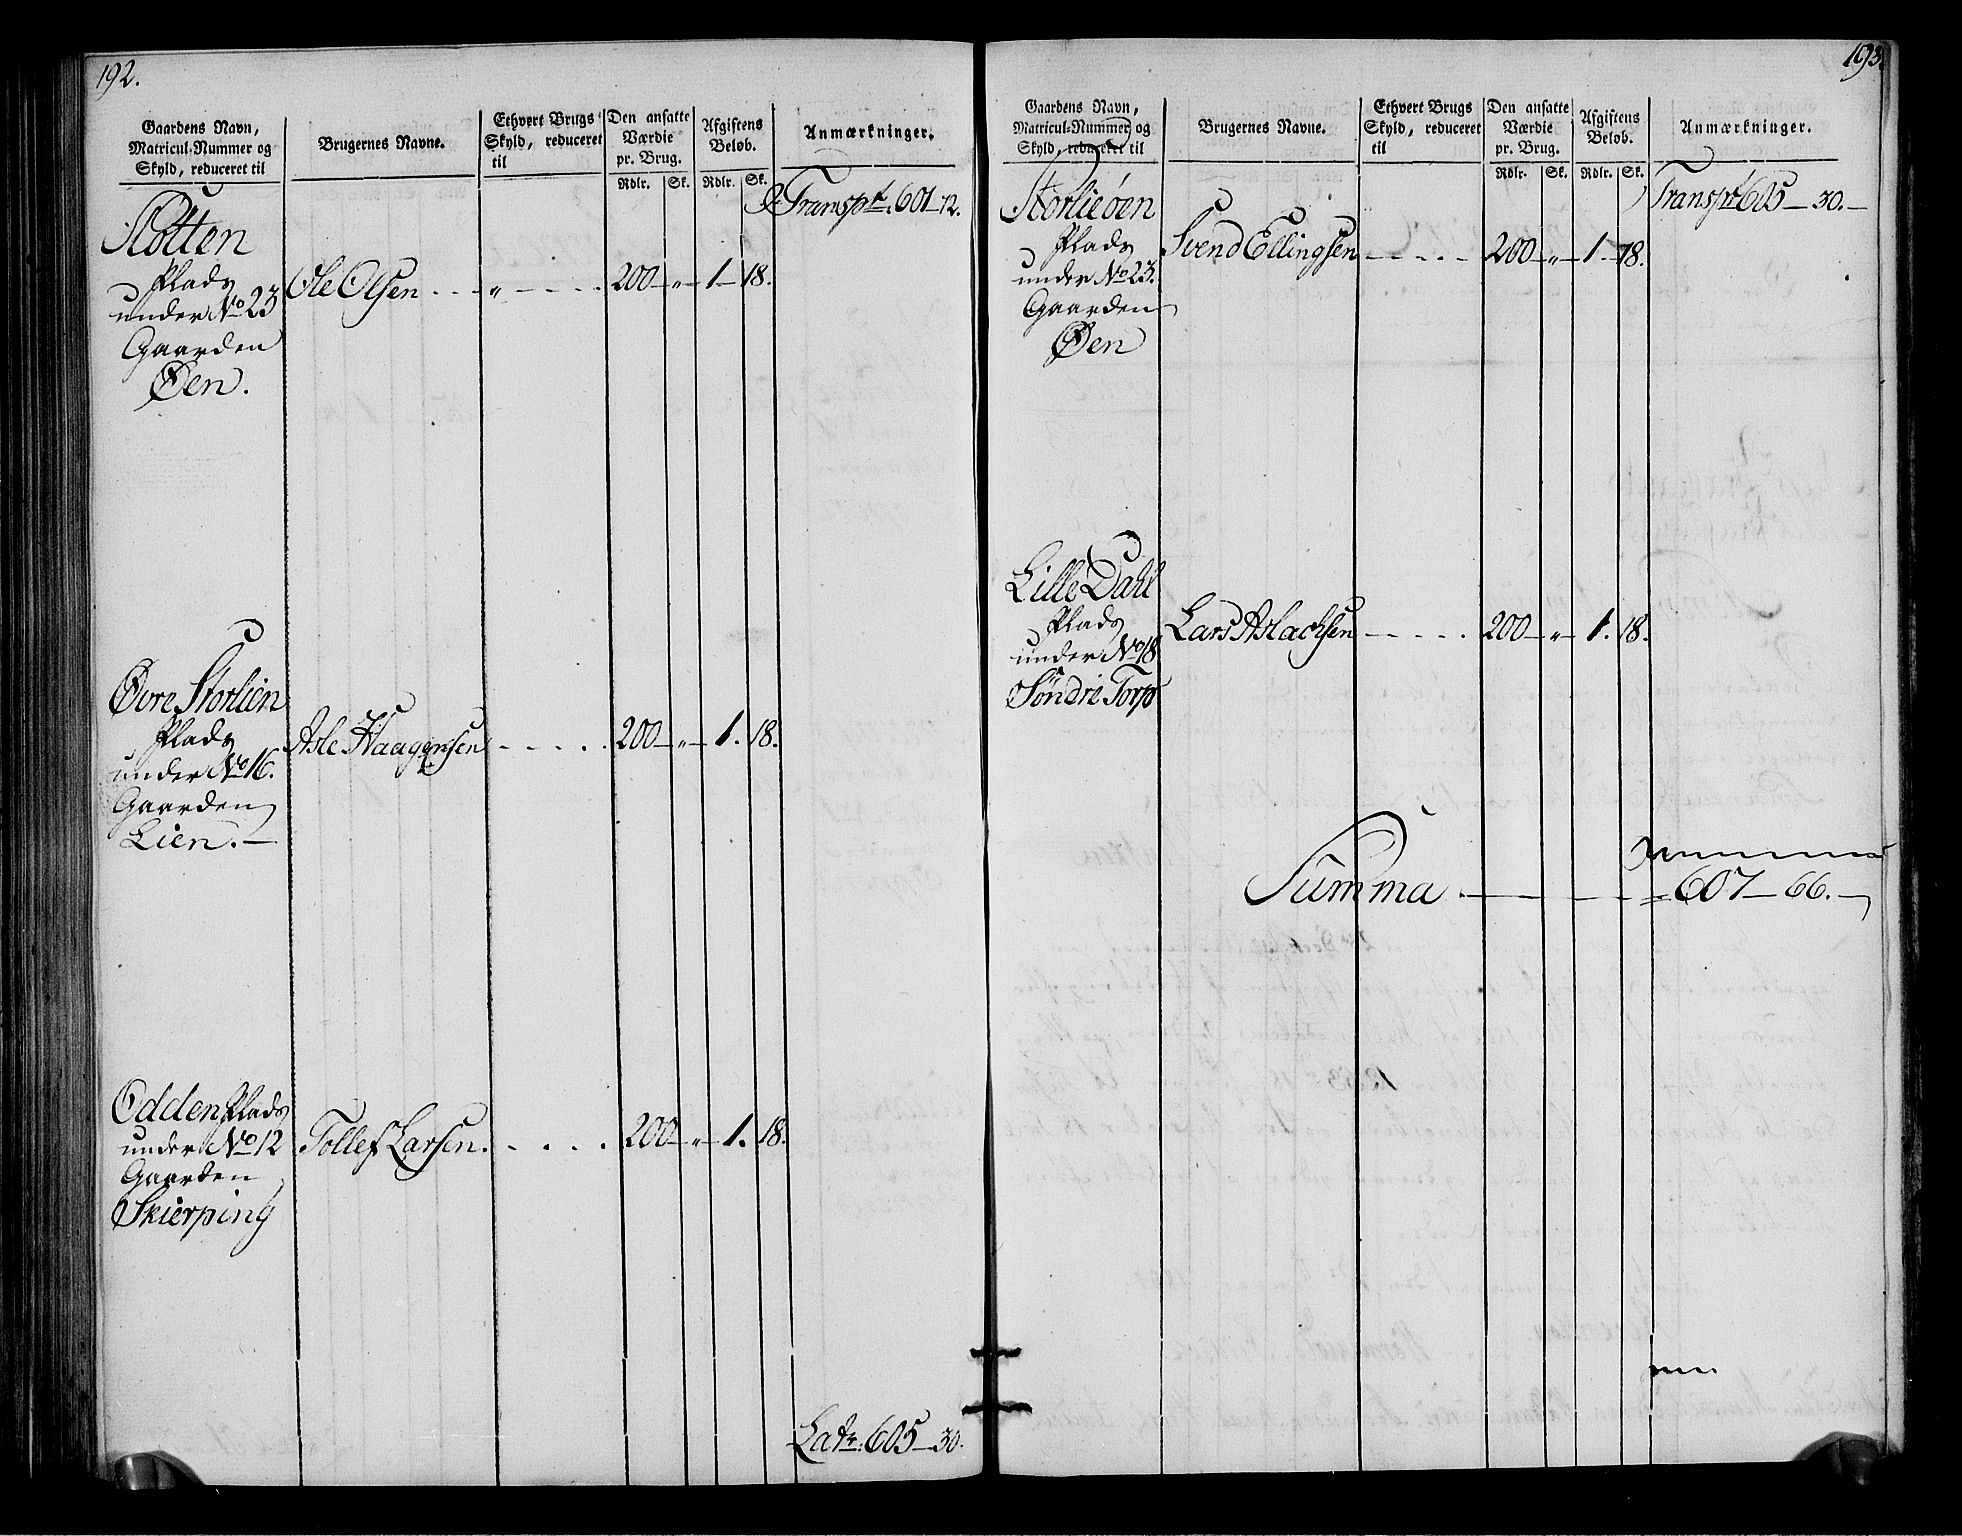 192.
Gaardens Navn,
Matricul-Nummer og
Skyld, reduceret til
Brugernes Navne.
Ethvert Brugs
Skyld, reduceret
til
Den ansatte
Værdie
pr. Brug.
Rdlr. Sk.
Afgiftens
Beløb.
Rdlr. Sk.
Anmærkninger.
Transpt. 601-12.
Slotten
Plads
under No 23
Gaarden
Øen.
Ole Olsen - - - „ - - - - 200 - „ - 1 - 18.
Øvre Storlien
Plads
under No 16.
Gaarden
Lien. -
Asle Haagensen - - - - - 200 - „ - 1. 18.
Odden Plads
under No 12
Gaarden
Skierping
Tollef Larsen. - - - - 200 - „ - 1. 18.
Latr: 605-30.
193.
Gaardens Navn,
Matricul-Nummer og
Skyld, reduceret til
Brugernes Navne.
Ethvert Brugs
Skyld, reduceret
til
Den ansatte
Værdie
pr. Brug.
Rdlr. Sk.
Afgiftens
Beløb.
Rdlr. Sk.
Anmærkninger.
Transpt 605 - 30. -
Storlieøen
Plads
under No 23.
Gaarden
Øen
Svend Ellingsen - - - - - 200 - „ - 1 - 18.
Lille Dahl
Plads
under No 18
Søndre Torp
Lars Aslachsen - - - - - 200 - „ - 1. 18.
Summa - - - = 607 - 66. -